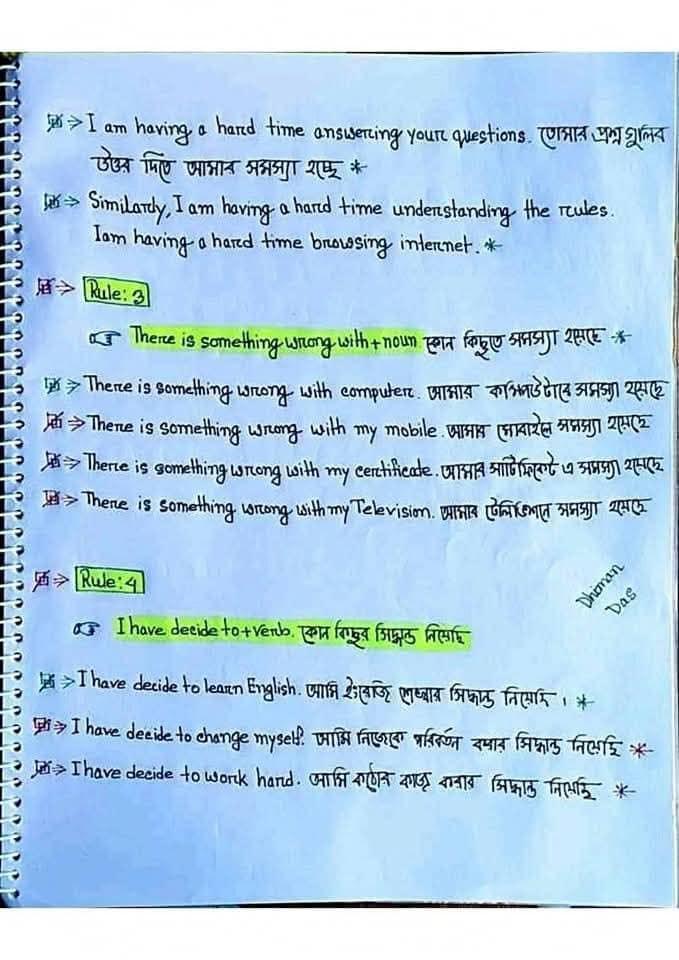 I am having a hard time answering your questions. তোমার প্রশ্ন গুলির
উত্তর দিতে আমার সমস্যা হচ্ছে *
Similarly, I am having a hard time understanding the rules.
I am having a hard time browsing internet. *
Rule: 3
There is something wrong with + noun কোন কিছুতে সমস্যা হয়েছে *
There is something wrong with computer. আমার কম্পিউটারে সমস্যা হয়েছে
There is something wrong with my mobile. আমার মোবাইলে সমস্যা হয়েছে
There is something wrong with my certificate. আমার সার্টিফিকেট এ সমস্যা হয়েছে
There is something wrong with my Television. আমার টেলিভিশনে সমস্যা হয়েছে
Dhiman
Das
Rule: 4
I have decide to + verb. কোন কিছুর সিদ্ধান্ত নিয়েছি
I have decide to learn English. আমি ইংরেজি শেখার সিদ্ধান্ত নিয়েছি । *
I have decide to change myself. আমি নিজেকে পরিবর্তন করার সিদ্ধান্ত নিয়েছি *
I have decide to work hard. আমি কঠোর কাজ করার সিদ্ধান্ত নিয়েছি *